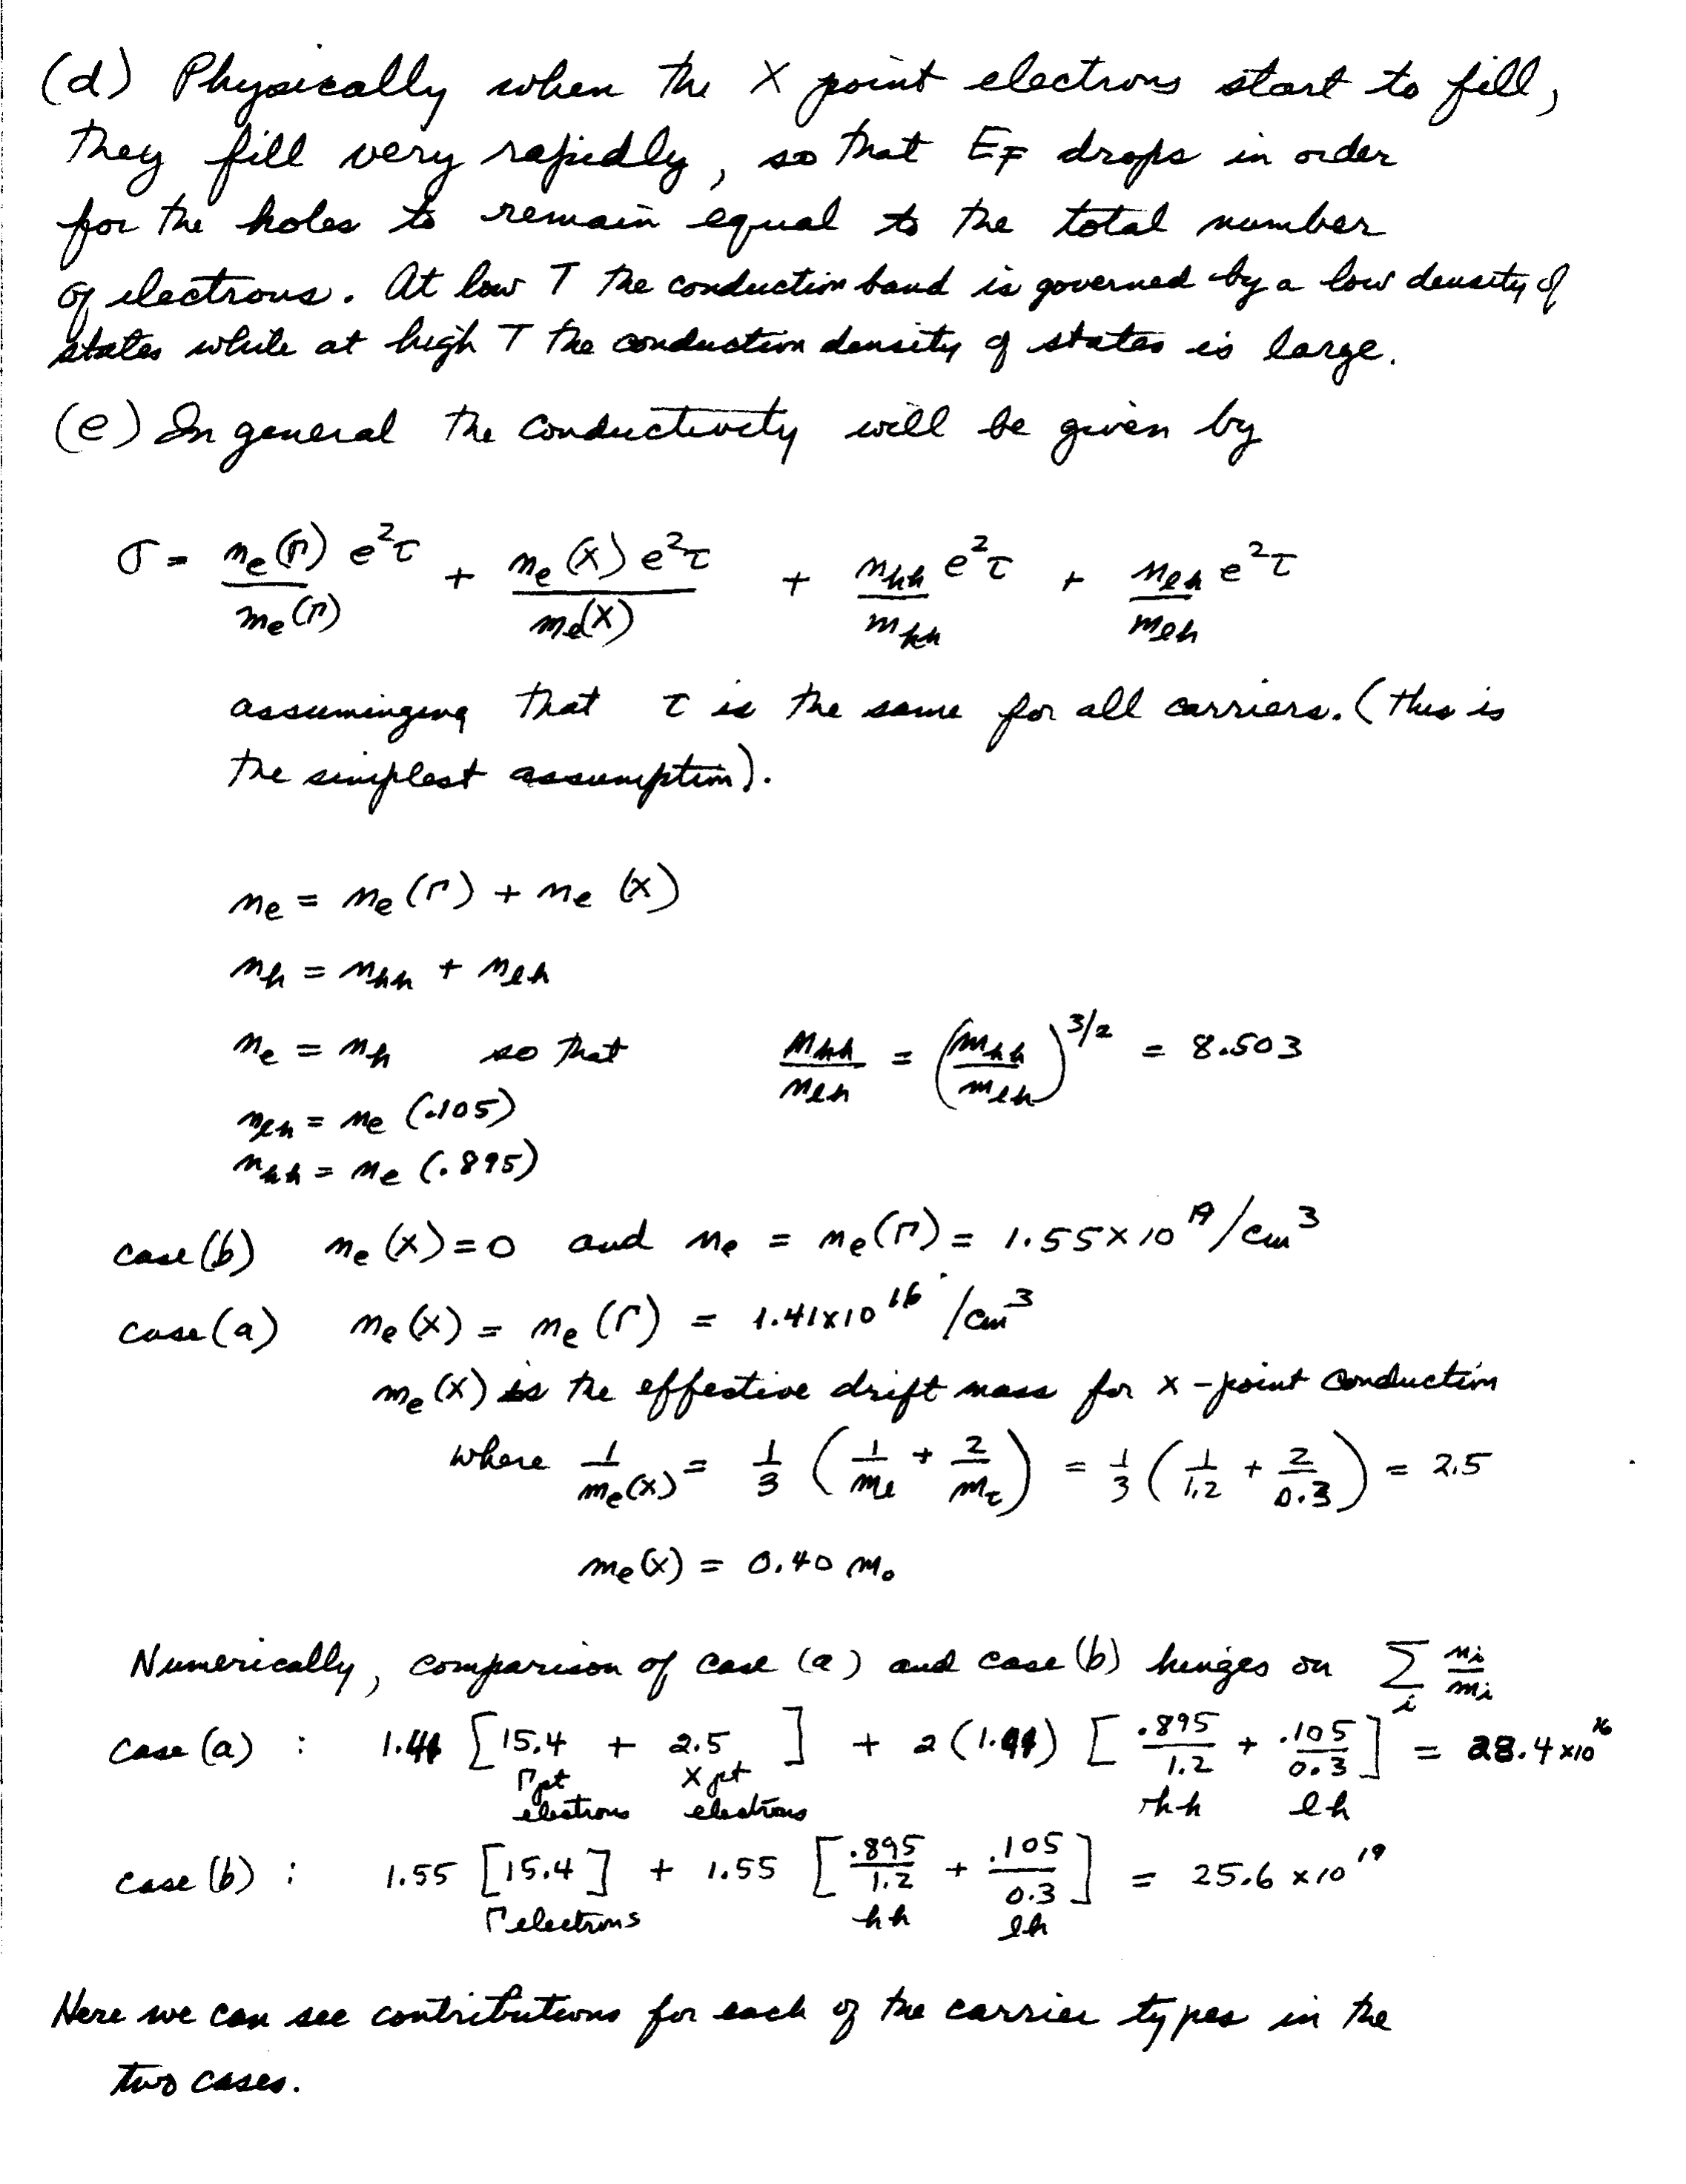 (d) Physically when the X point electrons start to fill,
they fill very rapidly, so that E_F drops in order
for the holes to remain equal to the total number
of electrons. At low T the conduction band is governed by a low density of
states while at high T the conduction density of states is large.
(e) In general the conductivity will be given by
σ = n_e(Γ) e²τ / m_e(Γ) + n_e(X) e²τ / m_e(X) + n_hh e²τ / m_hh + n_lh e²τ / m_lh
assuminging that τ is the same for all carriers. (this is
the simplest assumption).
n_e = n_e(Γ) + n_e(X)
n_h = n_hh + n_lh
n_e = n_h so that n_hh / n_lh = (m_hh / m_lh)^3/2 = 8.503
n_lh = n_e (.105)
n_hh = n_e (.895)
case (b) n_e(X) = 0 and n_e = n_e(Γ) = 1.55×10^19/cm³
case (a) n_e(X) = n_e(Γ) = 1.41×10^16/cm³
m_e(X) is the effective drift mass for X-point conduction
where 1/m_e(X) = 1/3 (1/m_l + 2/m_t) = 1/3 (1/1.2 + 2/0.3) = 2.5
m_e(X) = 0.40 m_0
Numerically, comparison of case (a) and case (b) hinges on Σ_i n_i/m_i
case (a) : 1.41 [15.4 + 2.5] + 2(1.41) [.895/1.2 + .105/0.3] = 28.4×10^16
Γpt electrons X pt electrons hh lh
case (b) : 1.55 [15.4] + 1.55 [.895/1.2 + .105/0.3] = 25.6×10^19
Γ electrons hh lh
Here we can see contributions for each of the carrier types in the
two cases.